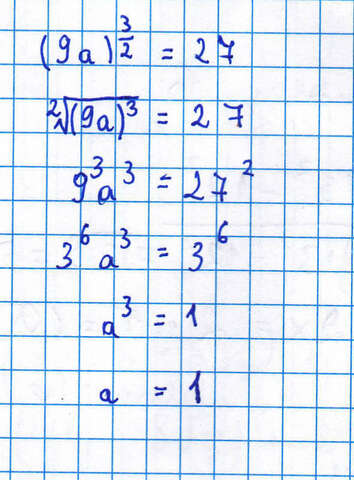 (9a)^{3/2} = 27
²√(9a)³ = 27
9³a³ = 27²
3⁶a³ = 3⁶
a³ = 1
a = 1